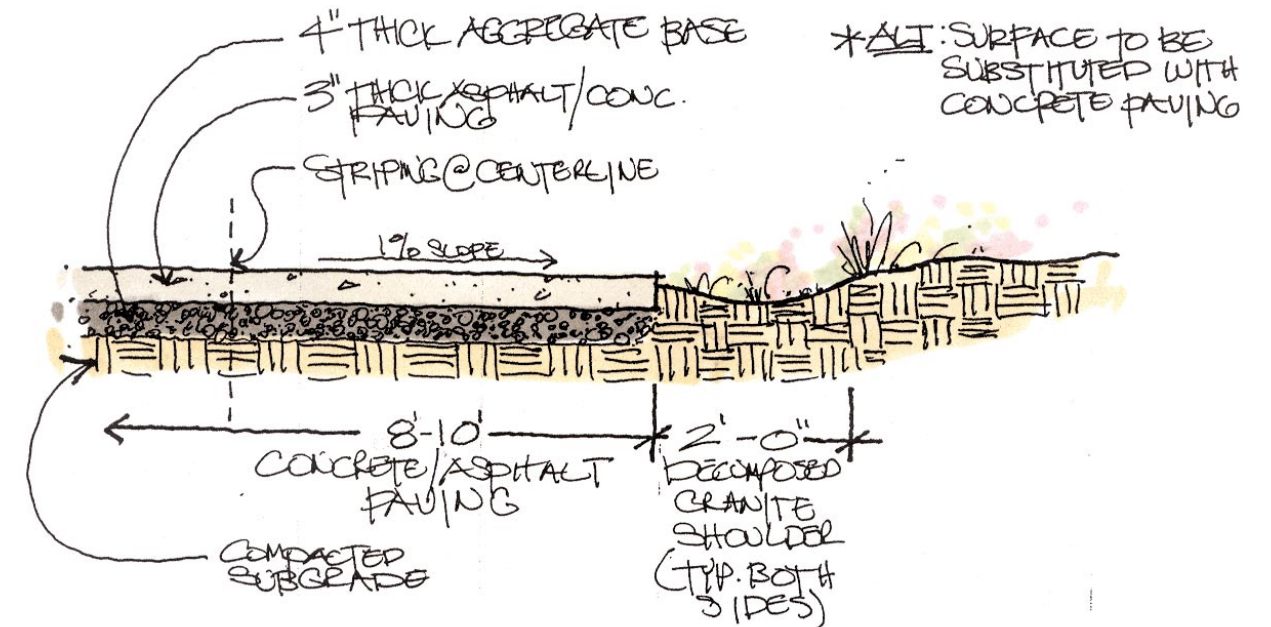 4" THICK AGGREGATE BASE
3" THICK ASPHALT/CONC.
PAVING
STRIPING @ CENTERLINE
*ALT: SURFACE TO BE
SUBSTITUTED WITH
CONCRETE PAVING
1% SLOPE
8'-10'
CONCRETE/ASPHALT
PAVING
2'-0"
DECOMPOSED
GRANITE
SHOULDER
(TYP. BOTH
SIDES)
COMPACTED
SUBGRADE